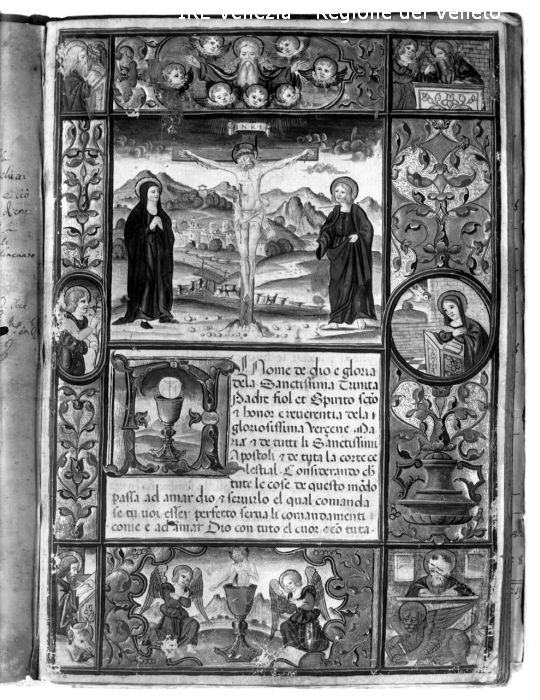 IRE Venezia - Regione del Veneto
INRI
IN Nome de dio e gloria
dela Sanctissima Trinita
Padre fiol et Spirito scto
⁊ honor e reverentia dela
gloriosissima Vergene Ma
ria ⁊ de tutti li Sanctissimi
Apostoli ⁊ de tuta la corte ce
lestial. Considerando ch
tute le cose de questo mōdo
passa ad amar dio ⁊ servirlo el qual comanda
se tu voi esser perfetto serva li comandamenti
come e ad amar Dio con tuto el cuor ⁊ cō tuta.